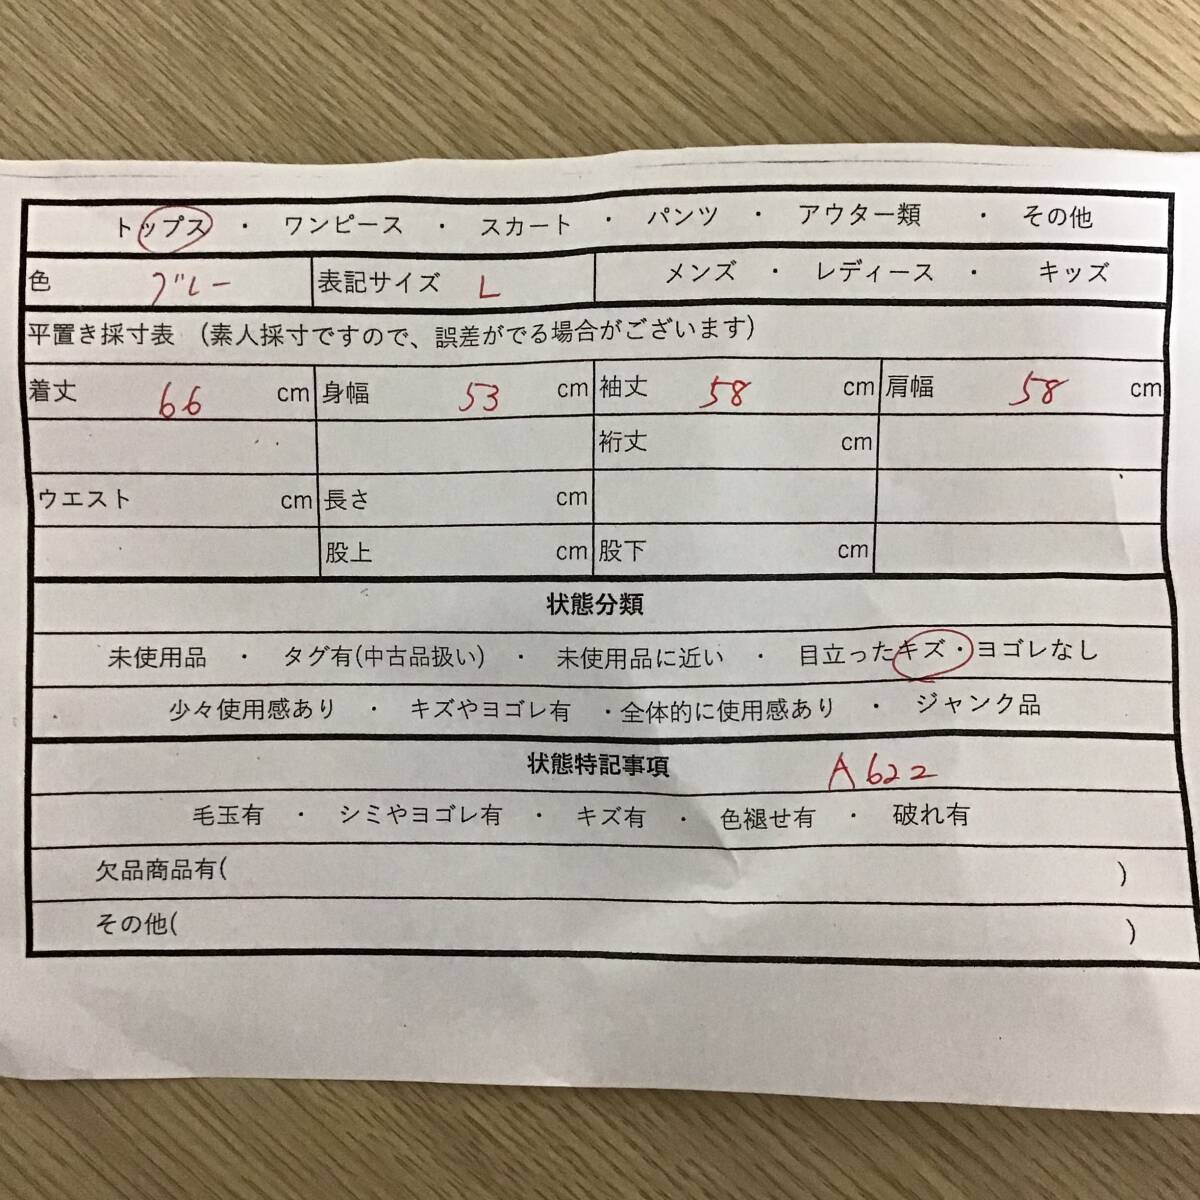 トップス ・ ワンピース ・ スカート ・ パンツ ・ アウター類 ・ その他
色 グレー 表記サイズ L メンズ ・ レディース ・ キッズ
平置き採寸表 (素人採寸ですので、誤差がでる場合がございます)
着丈 66 cm 身幅 53 cm 袖丈 58 cm 肩幅 58 cm
裄丈 cm
ウエスト cm 長さ cm
股上 cm 股下 cm
状態分類
未使用品 ・ タグ有(中古品扱い) ・ 未使用品に近い ・ 目立ったキズ・ヨゴレなし
少々使用感あり ・ キズやヨゴレ有 ・全体的に使用感あり ・ ジャンク品
状態特記事項 A622
毛玉有 ・ シミやヨゴレ有 ・ キズ有 ・ 色褪せ有 ・ 破れ有
欠品商品有( )
その他( )